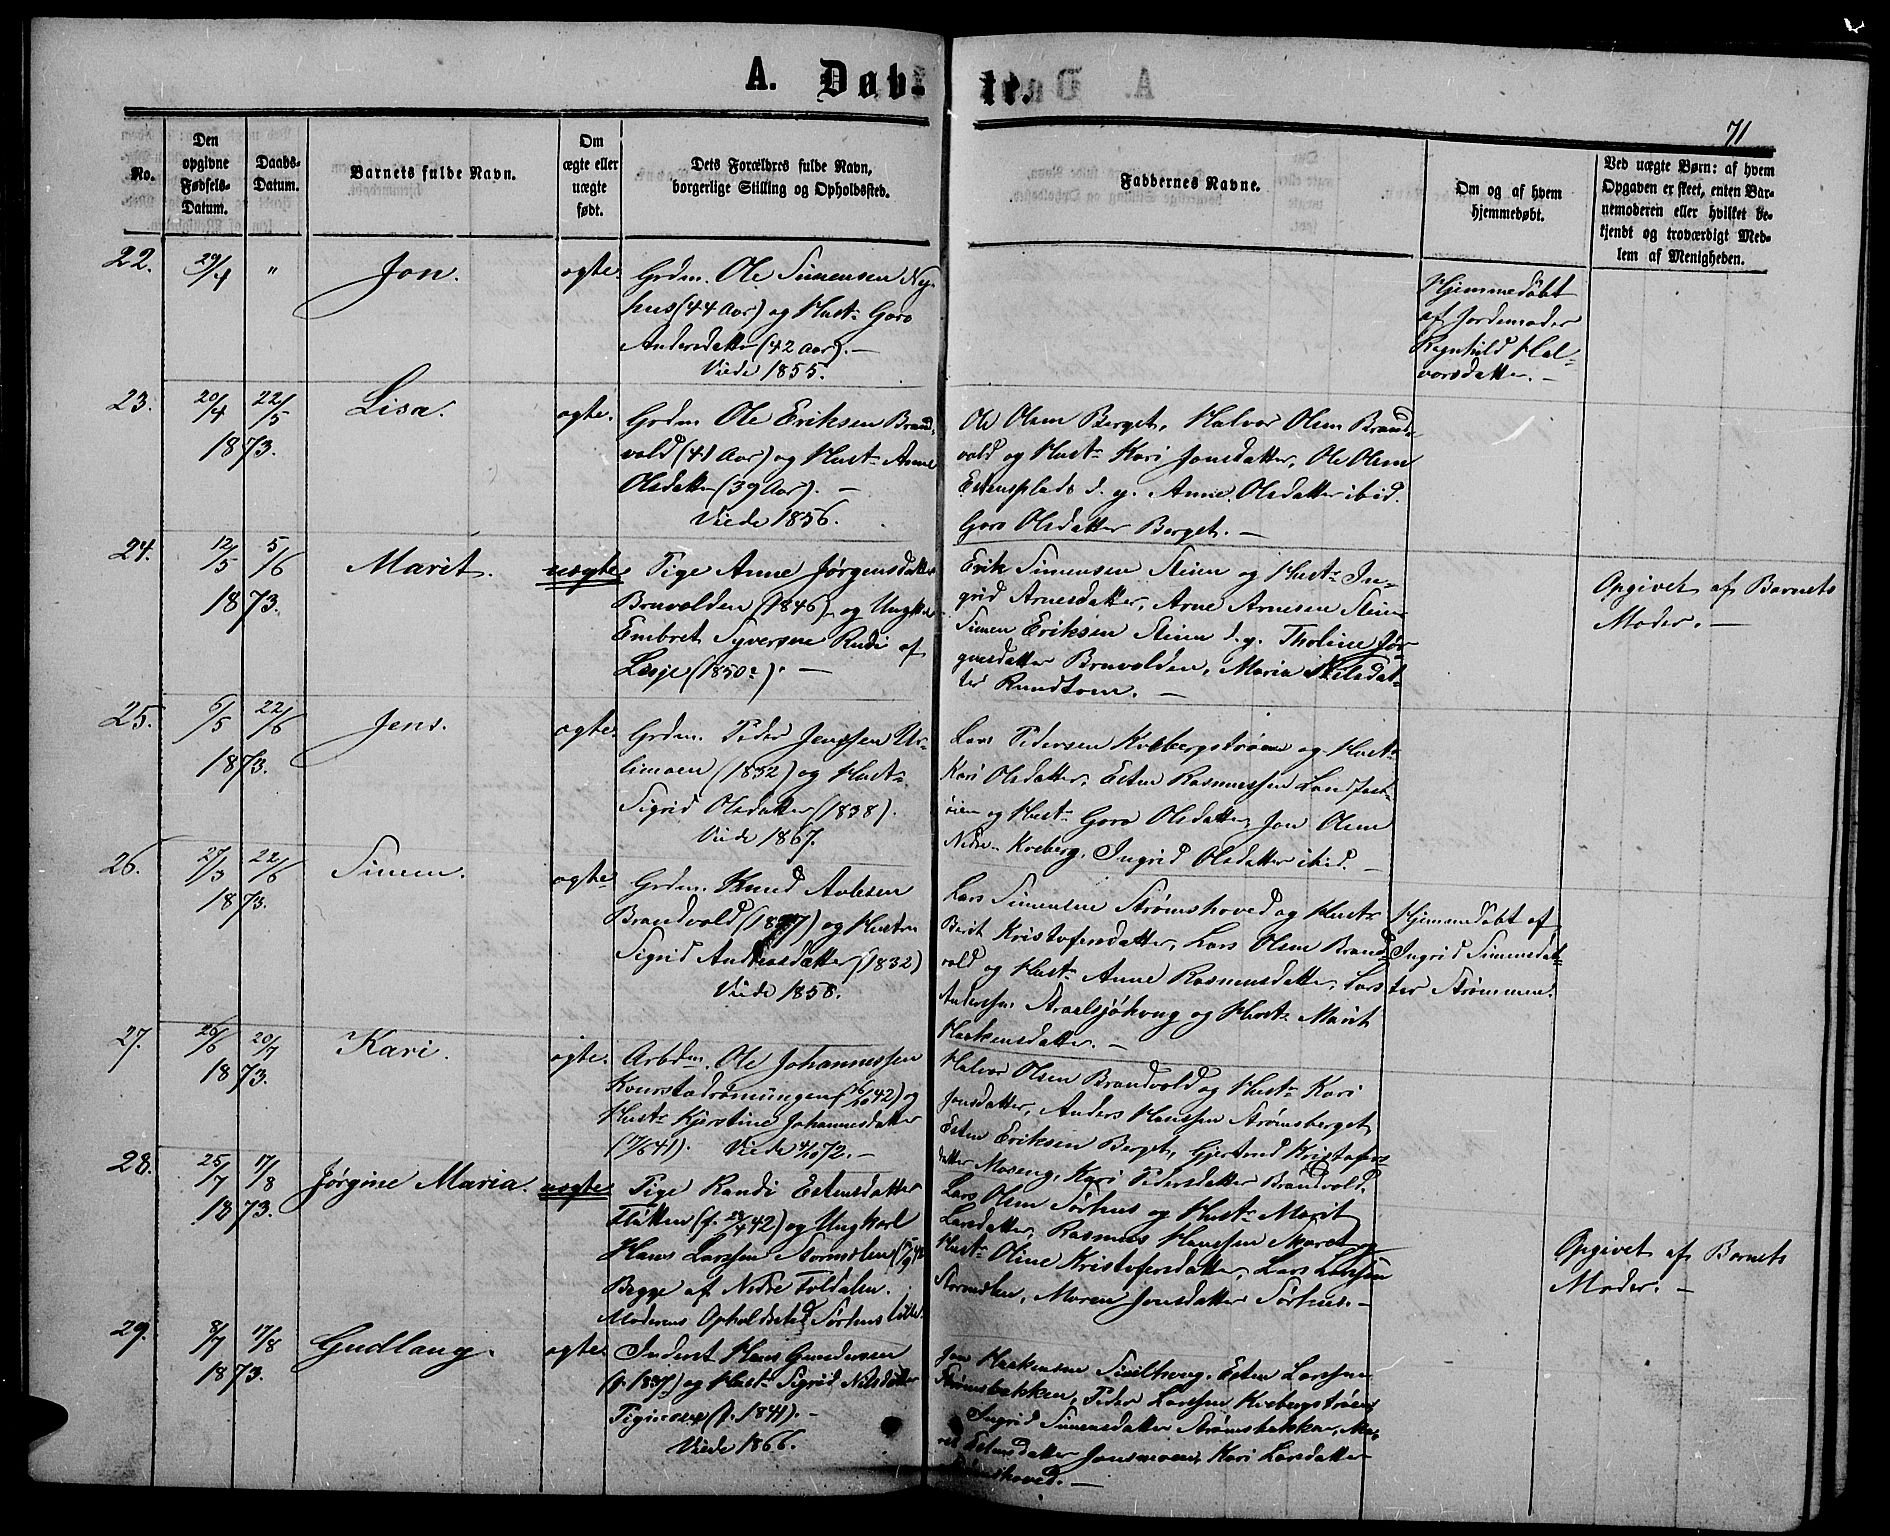 A. Døbte.
71
No.
Den opgivne Fødsels-Datum.
Daabs-Datum.
Barnets fulde Navn.
Om ægte eller uægte født.
Dets Forældres fulde Navn, borgerlige Stilling og Opholdssted.
Faddernes Navne.
Om og af hvem hjemmedøbt.
Ved uægte Børn: af hvem Opgaven er skeet, enten Barnemoderen eller hvilket bekjendt og troværdigt Medlem af Menigheden.
22.
29/4
"
Jon.
ægte.
Grdm. Ole Simensen Ny-
hus (44 Aar) og Hustr Goro
Andersdatter (42 Aar). —
Viede 1855.
Hjemmedøbt
af Jordemoder
Ragnhild Hal-
vorsdatter. —
23.
20/4 22/5
1873.
Lisa.
ægte.
Grdm. Ole Eriksen Brand-
vold (41 Aar) og Hustr Anne
Olsdatter (39 Aar). —
Viede 1856.
Ole Olsen Berget, Halvor Olsen Brand-
vold og Hustr Kari Jonsdatter, Ole Olsen
Estensplads d. y. Anne Olsdatter ibid.
Goro Olsdatter Berget. —
24.
12/5 5/6
1873.
Marit.
uægte
Pige Anne Jørgensdatter
Bruvolden (1846) og Ungkar
Embret Syversen Rudi af
Lesje (1850). —
Erik Simensen Steien og Hustr In-
grid Arnesdatter, Arne Arnesen Steien
Simen Eriksen Steien d. y. Tholine Jør-
gensdatter Bruvolden, Maria Nilsdat-
ter Rundtom. —
Opgivet af Barnets
Moder. —
25.
6/5 22/6
1873.
Jens.
ægte.
Grdm. Peder Jenssen Ur-
limoen (1832) og Hustr
Sigrid Olsdatter (1838).
Viede 1867.
Lars Pedersen Kvebergstrøen og Hustr
Kari Olsdatter, Esten Rasmussen Landfast-
øien og Hustr Goro Olsdatter, Jon Olsen
Nedre Kveberg, Ingrid Olsdatter ibid. —
26.
27/3 22/6
1873.
Simen.
ægte
Grdm. Knud Avlesen
Brandvold (1827) og Hustru
Sigrid Andreasdatter (1832)
Viede 1858.
Lars Simensen Strømshoved og Hustr
Berit Kristofersdatter, Lars Olsen Brand-
vold og Hustr Anne Rasmusdatter, Lars
Andersen Atnelsjøhaug og Hustr Marit
Haakensdatter. —
Hjemmedøbt af
Ingrid Simensdat-
ter Strømmen.
27.
26/6 20/7
1873.
Kari.
ægte.
Arbdm. Ole Johannessen
Kvarstadrønningen (16/10 42) og
Hustr Kjerstine Johannesdatter
(7/6 41). Viede 4/10 72. —
Halvor Olsen Brandvold og Hustr Kari
Jonsdatter, Anders Hanssen Strømsberget
Esten Eriksen Berget, Gjertrud Kristofers-
datter Moreng, Kari Pedersdatter Brandvold.
28.
25/7 17/8
1873.
Jørgine Maria.
uægte
Pige Randi Estensdatter
Flåtten (f. 24/4 42) og Ungkarl
Hans Larssen Stormolen
Begge af Nedre Foldalen.
Moderens Opholdssted Sørhus lille.
Lars Olsen Sørhus og Hustr Marit
Larsdatter, Rasmus Hanssen Moret og
Hustr Oline Kristofersdatter, Lars Larssen
Stormolen, Maren Jonsdatter Sørhus. —
Opgivet af Barnets
Moder. —
29.
8/7 17/8
1873.
Gudlaug.
ægte.
Inderst Hans Gundersen
(f. 1837) og Hustr Sigrid Nilsdatter
Tigimoen (f. 1841). —
Viede 1866.
Jon Haakensen Sivilhaug, Esten Larssen
Strømsbakken, Peder Larssen Kvebergstrøen,
Ingrid Simensdatter Strømsbakken, Ma-
rit Estensdatter Jonsmoen, Kari Larsdatter
Strømshoved. —